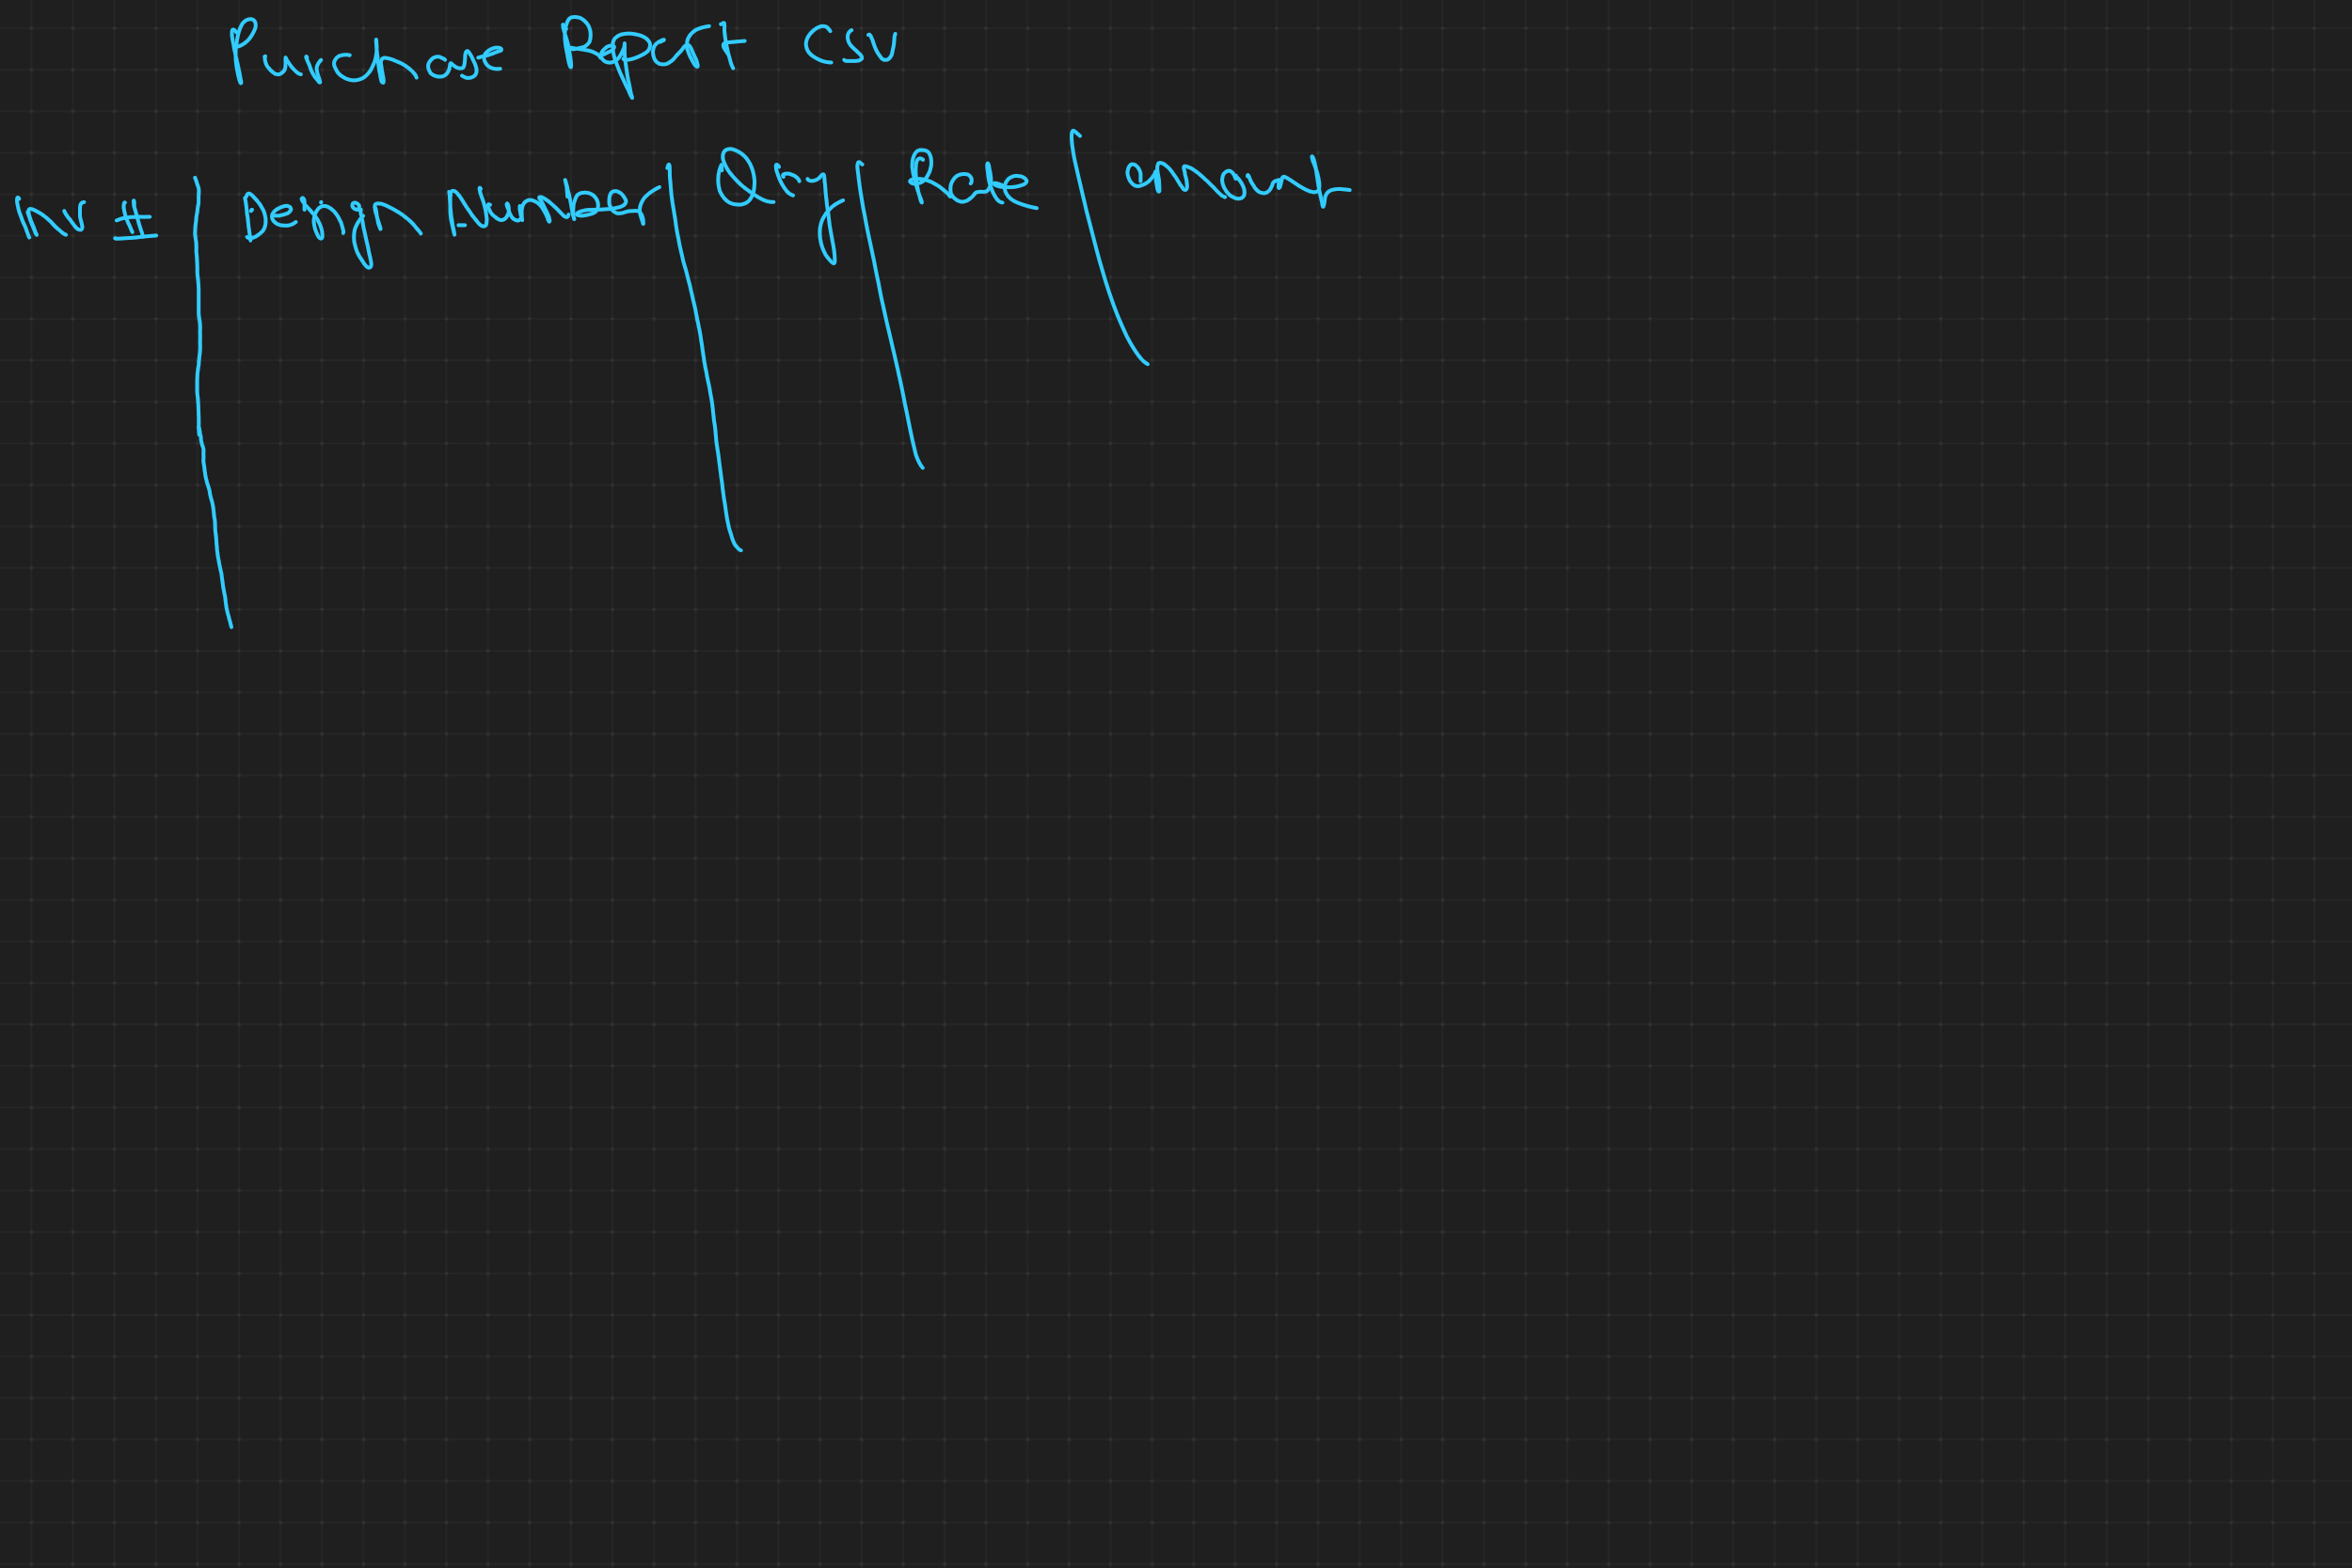 Purchase Report CSV
Nr # Design Number Qty Rate amount